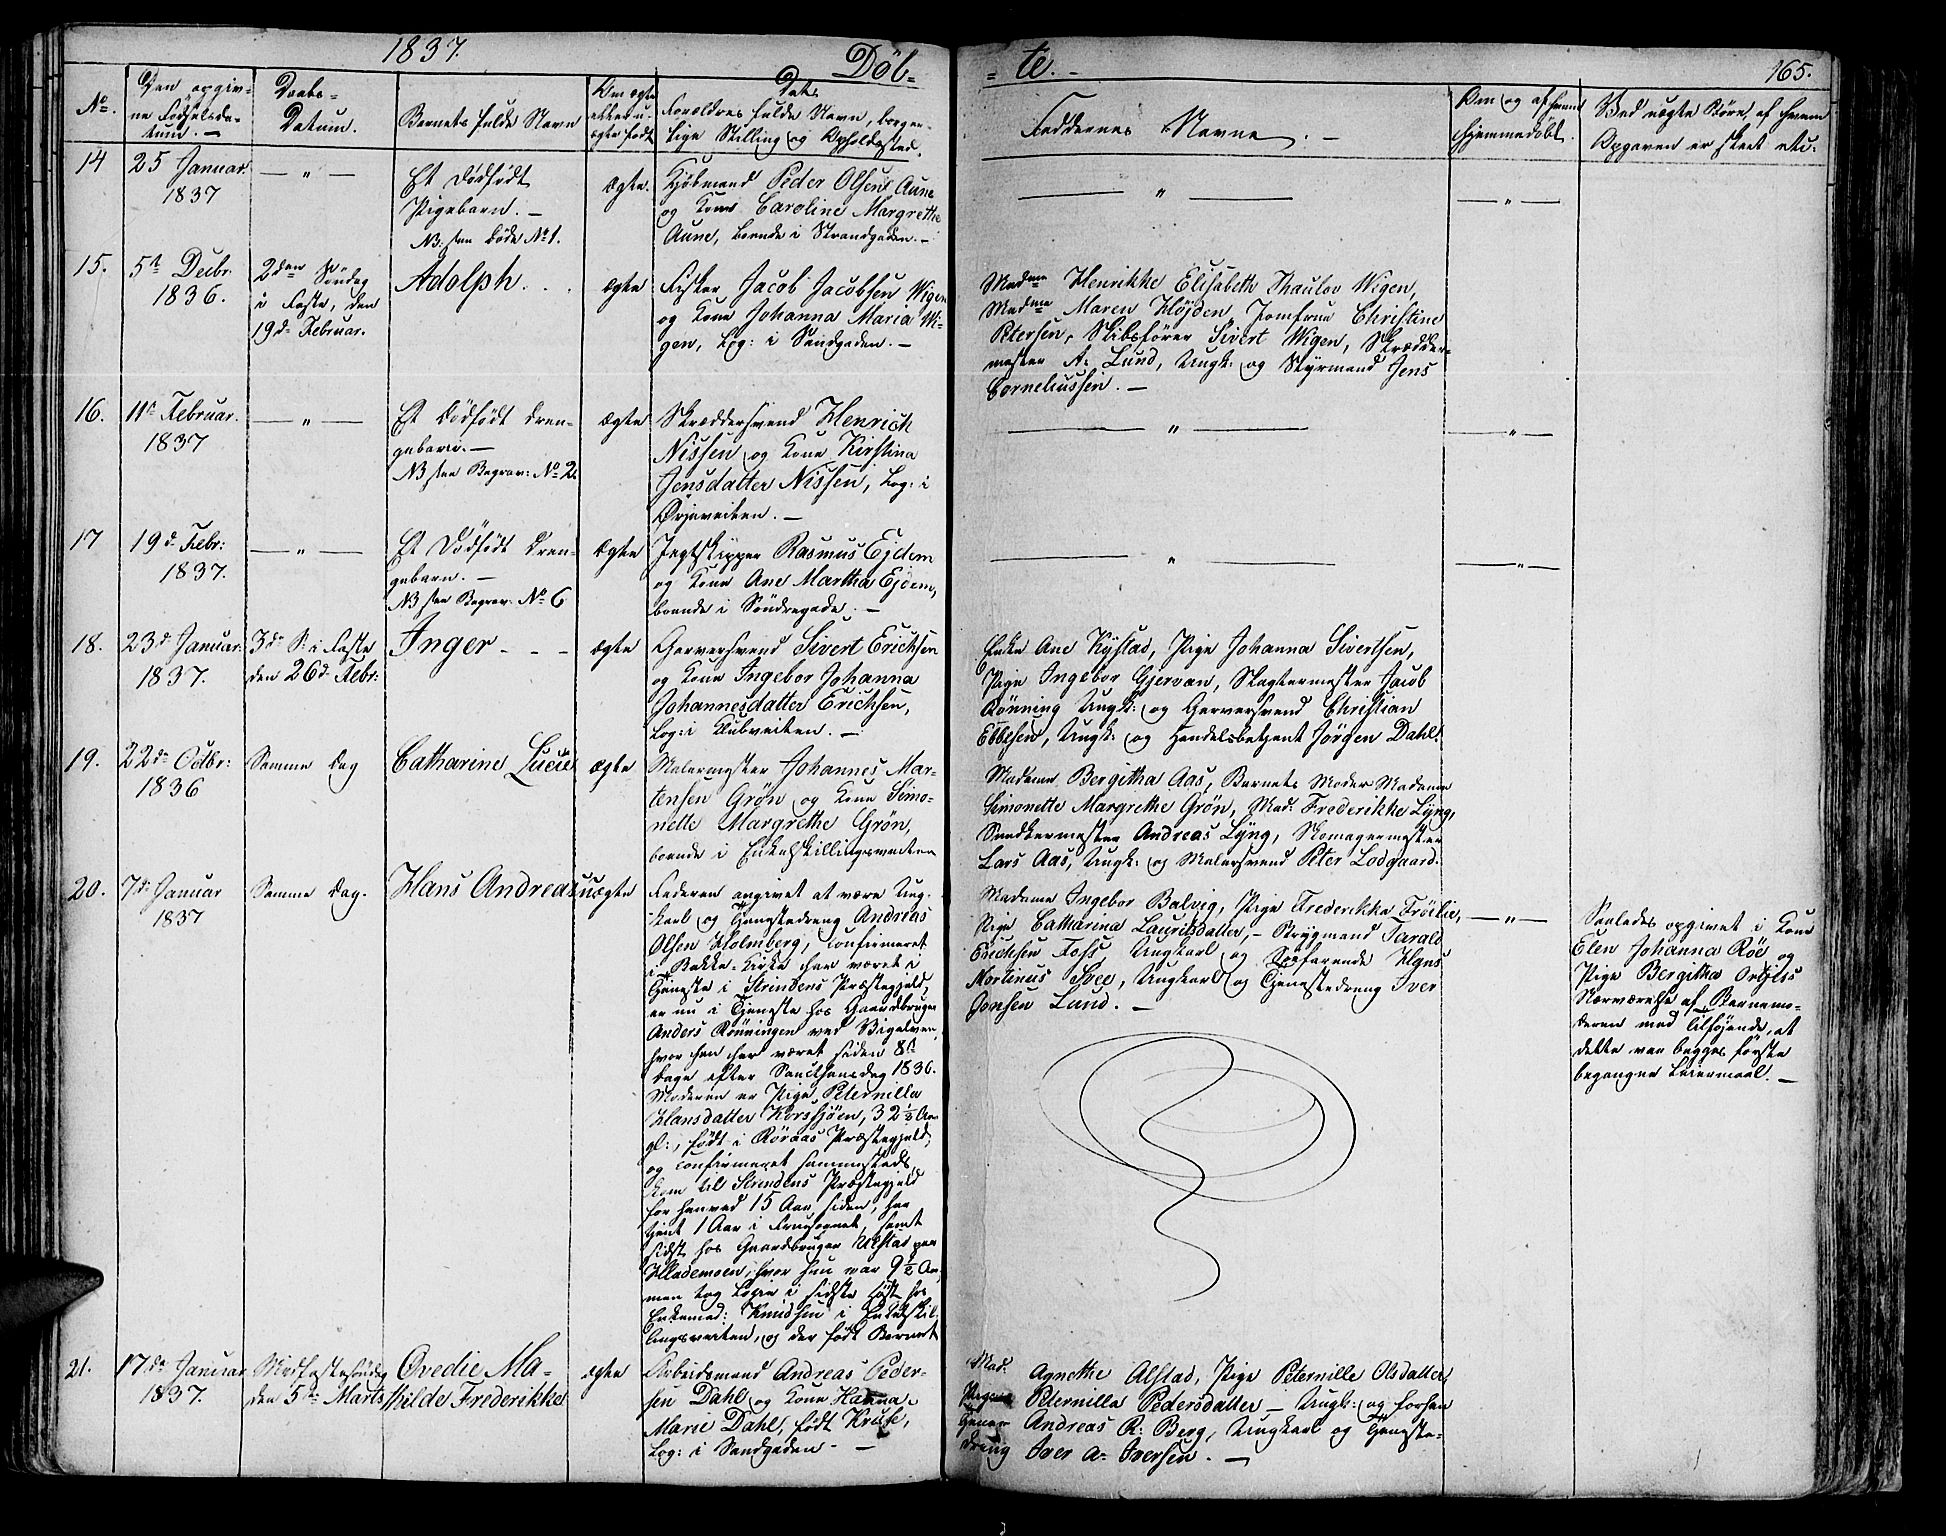 1837.
Döb-
- te. -
165.
No.
Den opgiv-
ne Fødselsda-
tum. -
Daabs-
Datum.
Barnets fulde Navn
Om ægte
eller u-
ægte født
Dets
Forældres fulde Navn, borger-
lige Stilling og Opholdssted.
Faddernes Navne. -
Om og af hvem
hjemmedöbt.
Ved uægte Børn, af hvem
Opgaven er skeet etc:
14
25 Januar.
1837
— " —
Et dödfödt
Pigebarn. -
NB: see Døde No 1.
ægte.
Kjøbmand Peder Olsen Aune
og Kone Caroline Margrethe
Aune, boende i Strandgaden. -
— " —
— " —
15.
5te Decbr.
1836.
2den Söndag
i Faste, den
19de Februar.
Adolph. . .
ægte
Fisker Jacob Jacobsen Wigen
og Kone Johanna Maria Wi-
gen, Log: i Sandgaden. -
Madme Henrikke Elisabeth Thaulov Wigen,
Madme Maren Höjden, Jomfrue Christine
Petersen, Skibsfører Sivert Wigen, Skrædder-
mester A. Lund, Ungk: og Styrmand Jens
Corneliussen. -
16.
11te Februar.
1837
— " —
Et dödfödt Dren-
gebarn. -
NB see Begrav: No 2.
ægte
Skræddersvend Henrich
Nissen og Kone Kirstina
Jensdatter Nissen, Log: i
Örjeveiten. -
— " —
— " —
17
19de Febr:
1837.
— " —
Et Dödfödt Dren-
gebarn. -
NB see Begrav: No 6
ægte
Jegtskipper Rasmus Ejdem
og Kone Ane Martha Ejdem,
boende i Söndregade. -
— " —
— " —
18.
23de Januar:
1837.
3de S: i Faste
den 26de Febr:
Inger - - -
ægte
Garversvend Sivert Erichsen
og Kone Ingebor Johanna
Johannesdatter Erichsen,
Log: i Klubveiten. -
Enke Ane Kystad, Pige Johanna Sivertsen,
Pige Ingebor Gjervan, Slagtermester Jacob
Rönning Ungk: og Garversvend Christian
Ebbesen, Ungk: og Handelsbetjent Jörgen Dahl.
19.
22de Octbr:
1836
Samme Dag
Catharine Lucie
ægte
Malermester Johannes Mar-
tensen Grön og Kone Simo-
nette Margrethe Grön,
boende i Enkelskillingsveiten
Madame Bergitha Aas, Barnets Moder Madame
Simonette Margrethe Grön, Mad: Frederikke Lyng,
Snedkermester Andreas Lyng, Skomagermester
Lars Aas, Ungk: og Malersvend Peter Lodgaard.
20.
7de Januar
1837
Samme Dag.
Hans Andreas
uægte
Faderen angivet at være Ung-
karl og Tjenestedreng Andreas
Olsen Holmberg, confirmeret
i Bakke-Kirke har været i
Tjeneste i Strindens Præstegjeld,
er nu i Tjeneste hos Gaardbruger
Anders Rönningen ved Vigelven,
hvor han har været siden 8te
Dage efter Sancthansdag 1836.
Moderen er Pige Peternilla
Hansdatter Korssjöen, 32 1/2 Aar
gl:, født i Röraas Præstegjeld,
og confirmeret sammesteds,
kom til Strindens Præstegjeld
for henved 15 Aar siden, har
tjent 1 Aar i Fruesognet, samt
sidst hos Gaardbruger Ulstad paa
Hlademoen, hvor hun var 9 1/2 Aar,
men tog Logie i sidste Høst hos
Enkemad: Knudsen i Enkelskil-
lingsveiten, og der født Barnet
Madame Ingebor Balvig, Pige Frederikka Fröilie,
Pige Catharina Lauritsdatter, - Brygmand Tarald
Erichsen Foss, Ungkarl og Søefarende Hans
Mortinus Svee, Ungkarl og Tjenestedreng Iver
Jonsen Lund. -
— " —
Saaledes opgivet i Kone
Elen Johanna Röe og
Pige Bergitha Ordfjes
Nærværelse af Barnemo-
deren med Tilföjende, at
dette var begges förste
begangne Leiermaal. -
21.
17de Januar
1837.
Midfastesöndag
den 5te Marts
Ovedie Ma-
thilde Frederikke
ægte
Arbeidsmand Andreas Peder-
sen Dahl og Kone Hanna
Marie Dahl, født Kruse,
Log: i Sandgaden - -
Mad. Agnethe Alstad, Pige Peternille Olsdatter
Pigen Peternilla Pedersdatter - Ungk: og
Andreas R. Berg, Ungkarl og Tjeneste-
dreng Iver A. Iversen. -